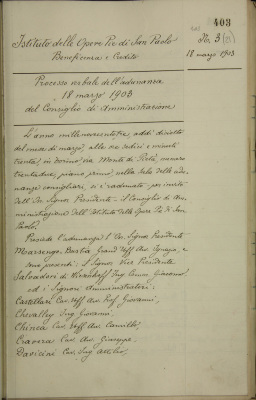 403
No. 3
18 marzo 1903
Istituto delle Opere Pie di San Paolo
Beneficenza e Credito
Processo verbale dell'adunanza
18 marzo 1903
del Consiglio di Amministrazione
L'anno millenovecentotre, addì diciotto
del mese di marzo, alle ore sedici e minuti
trenta, in Torino, via Monte di Pietà, numero
trentadue, piano primo, nella sala delle adu-
nanze consigliari, si è radunato per invito
dell'Ill. Signor Presidente il Consiglio di Am-
ministrazione dell'Istituto delle Opere Pie di San
Paolo.
Presiede l'adunanza l'Ill. Signor Presidente
Marsengo Bastia Grand'Uff. Avv. Ignazio, e
sono presenti: il Signor Vice Presidente
Salvadori di Wiesenhoff Ing. Comm. Giacomo,
ed i Signori Amministratori:
Castellari Cav. Uff. Avv. Prof. Giovanni,
Chevalley Ing. Giovanni,
Chinea Cav. Uff. Avv. Camillo,
Cravero Cav. Avv. Giuseppe,
Davicini Cav. Ing. Attilio,